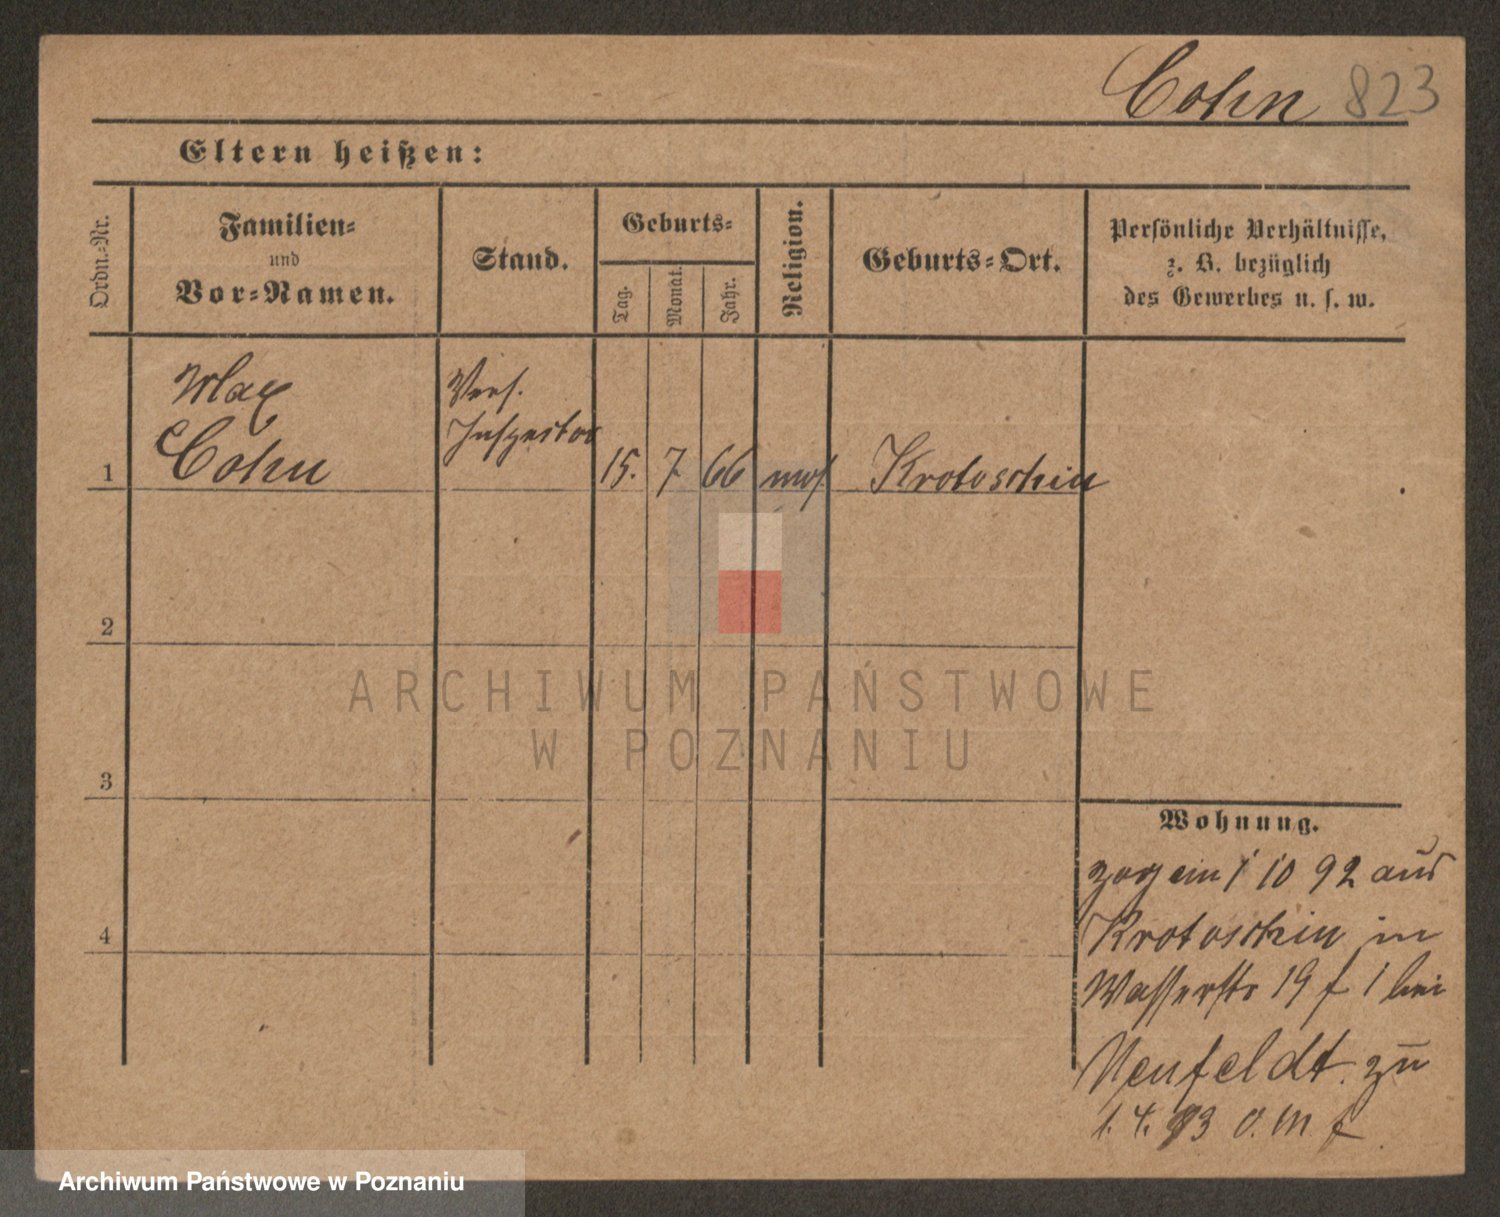 Cohn 823
Eltern heißen:
Ordn.-Nr.
Familien-
und
Vor-Namen.
Stand.
Geburts-
Tag.
Monat.
Jahr.
Religion.
Geburts-Ort.
Persönliche Verhältnisse,
z. B. bezüglich
des Gewerbes u. s. w.
Max
Cohn
Vers.
Inspector
1
15. 7. 66 mos. Krotoschin
2
3
4
ARCHIWUM PAŃSTWOWE
W POZNANIU
Wohnung.
zog ein 1 10 92 aus
Krotoschin in
Wasserstr 19 f 1 bei
Neufeldt. zu
1. 4. 93
Archiwum Państwowe w Poznaniu